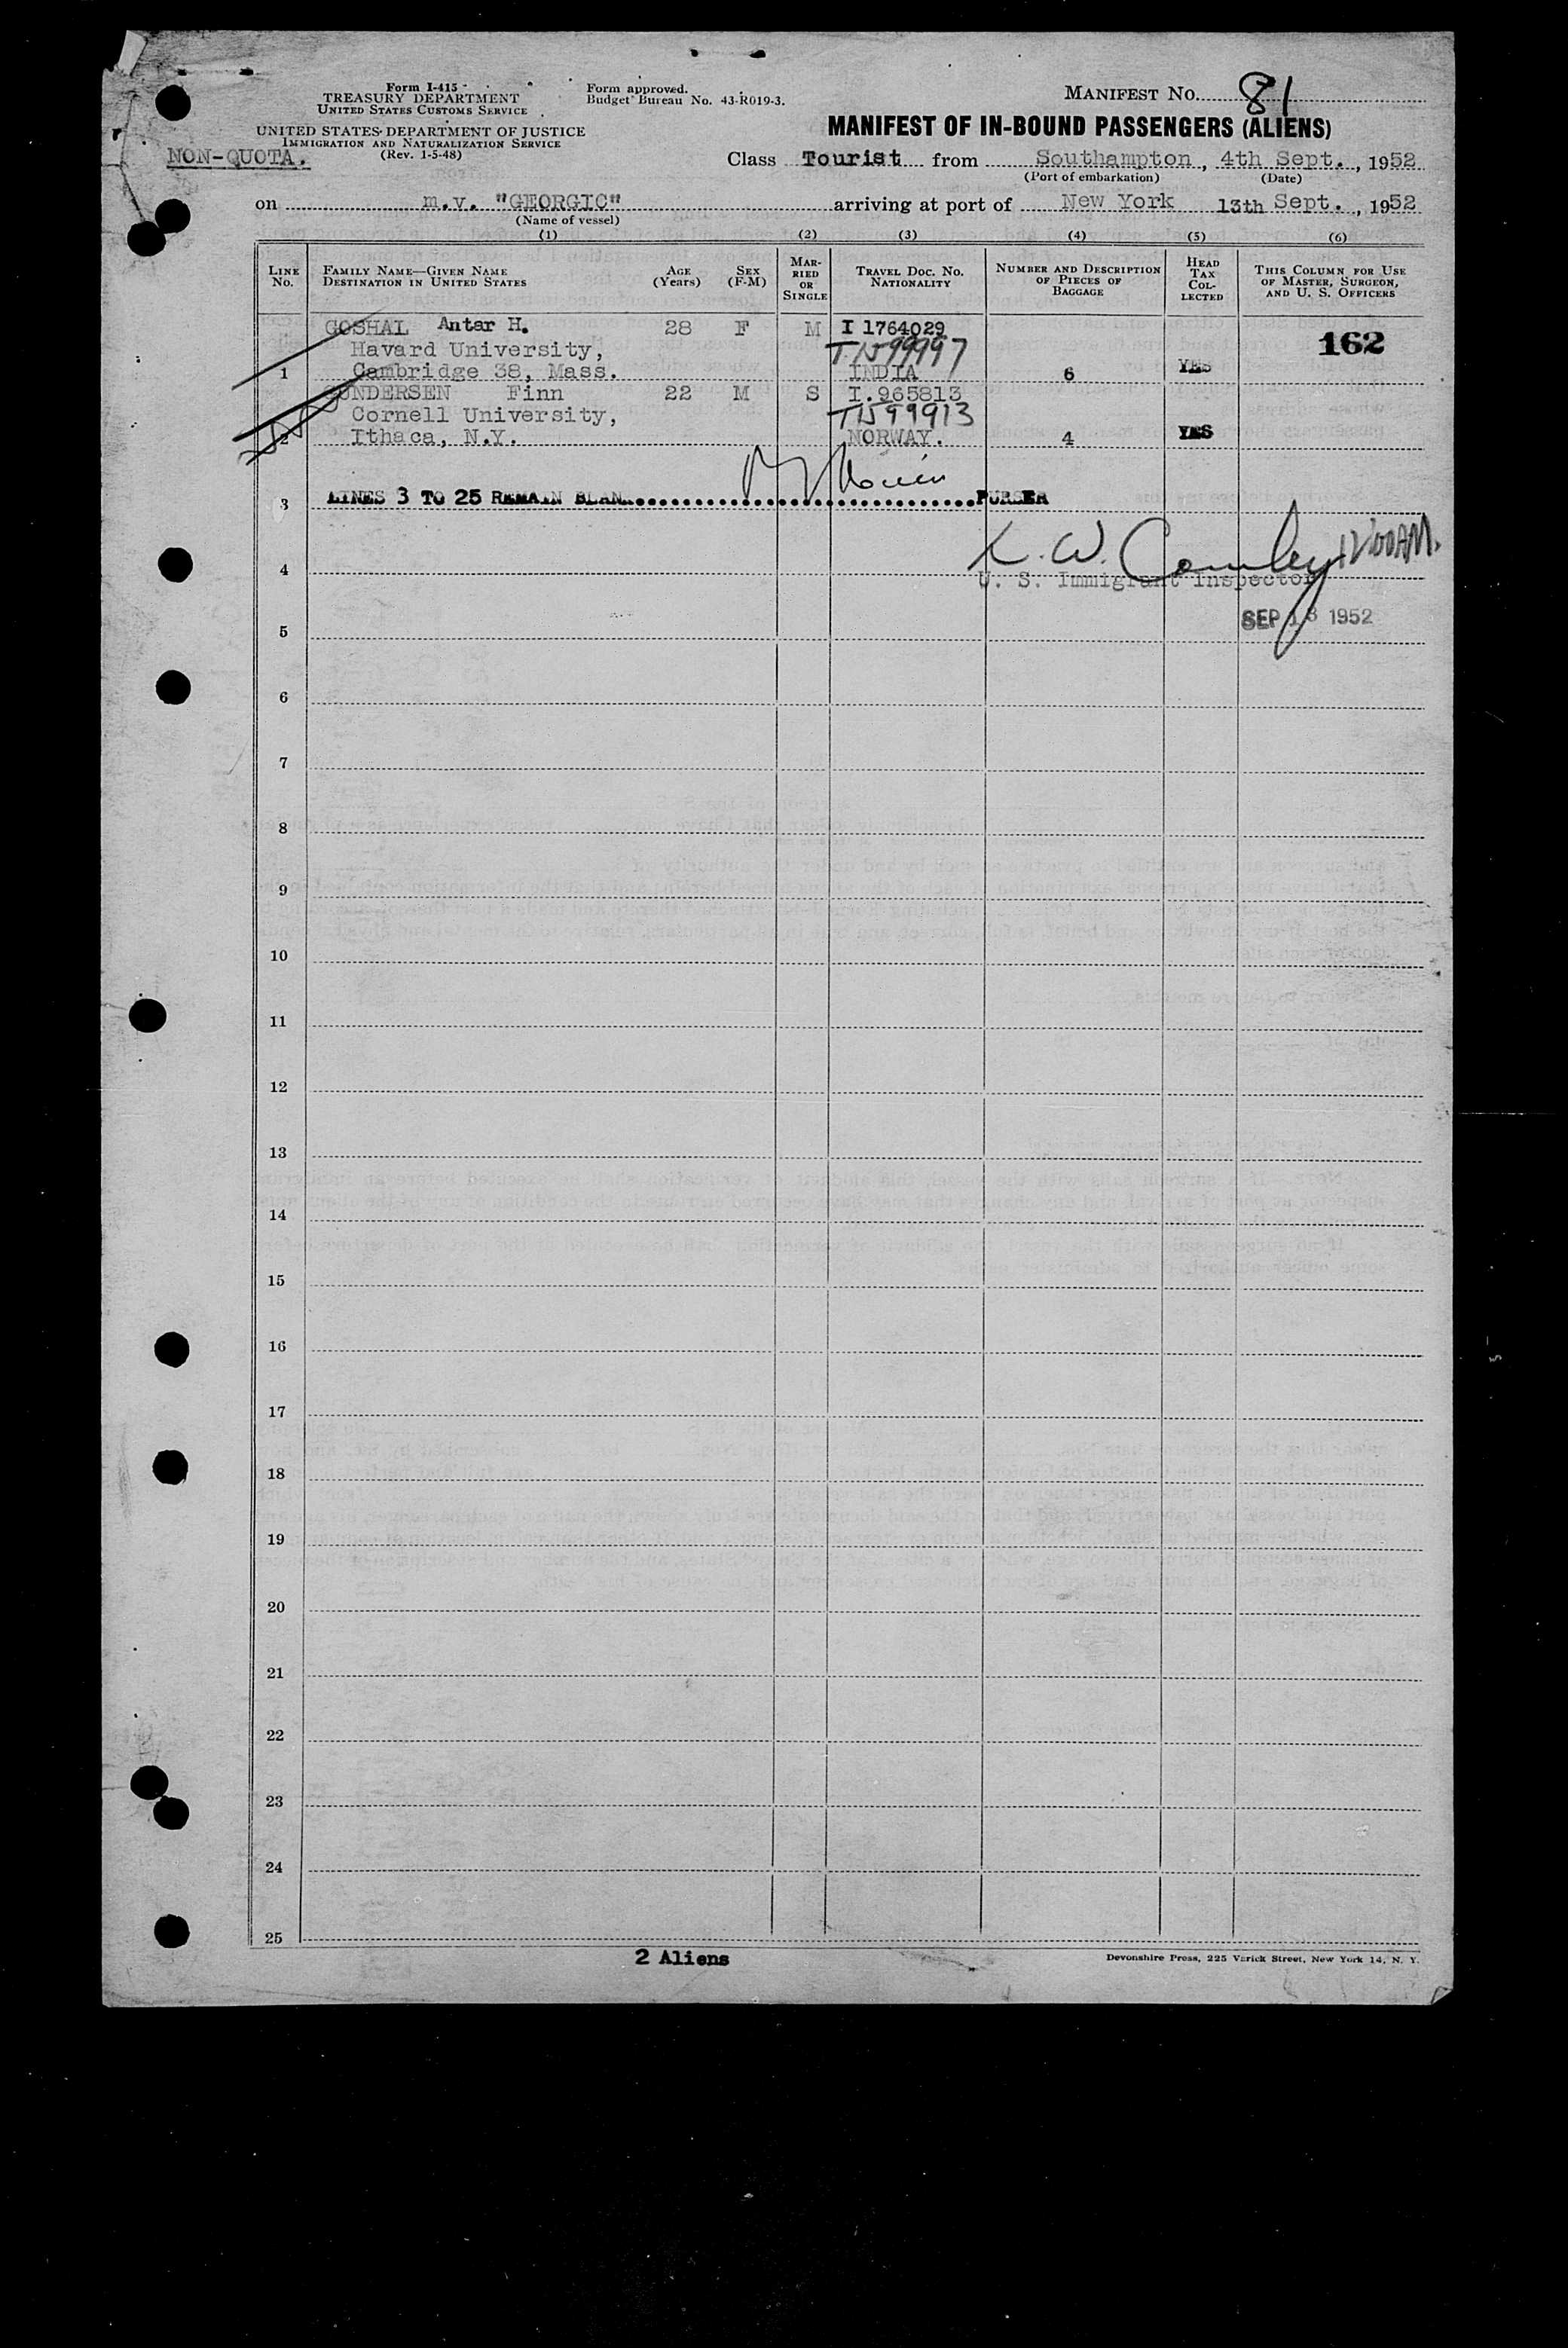 Form I-415
TREASURY DEPARTMENT
UNITED STATES CUSTOMS SERVICE
UNITED STATES DEPARTMENT OF JUSTICE
IMMIGRATION AND NATURALIZATION SERVICE
(Rev. 1-5-48)
NON-QUOTA.
Form approved.
Budget Bureau No. 43-R019-3.
MANIFEST NO. 81
MANIFEST OF IN-BOUND PASSENGERS (ALIENS)
Class Tourist from Southampton, 4th Sept., 1952
(Port of embarkation) (Date)
on m.v. "GEORGIC" arriving at port of New York 13th Sept., 1952
(Name of vessel)
(1) (2) (3) (4) (5) (6)
LINE No. FAMILY NAME—GIVEN NAME DESTINATION IN UNITED STATES AGE (Years) SEX (F-M) MARRIED OR SINGLE TRAVEL DOC. NO. NATIONALITY NUMBER AND DESCRIPTION OF PIECES OF BAGGAGE HEAD TAX COLLECTED THIS COLUMN FOR USE OF MASTER, SURGEON, AND U. S. OFFICERS
GOSHAL Antar H. 28 F M I 1764029 162
Havard University, T1599997
1 Cambridge 38, Mass. INDIA 6 YES
GUNDERSEN Finn 22 M S I.965813
Cornell University, T1599913
2 Ithaca, N.Y. NORWAY. 4 YES
3 LINES 3 TO 25 REMAIN BLANK PURSER
K. W. Comley 12:00AM.
4 U. S. Immigrant Inspector
5 SEP 13 1952
6
7
8
9
10
11
12
13
14
15
16
17
18
19
20
21
22
23
24
25
2 Aliens
Devonshire Press, 225 Varick Street, New York 14, N. Y.